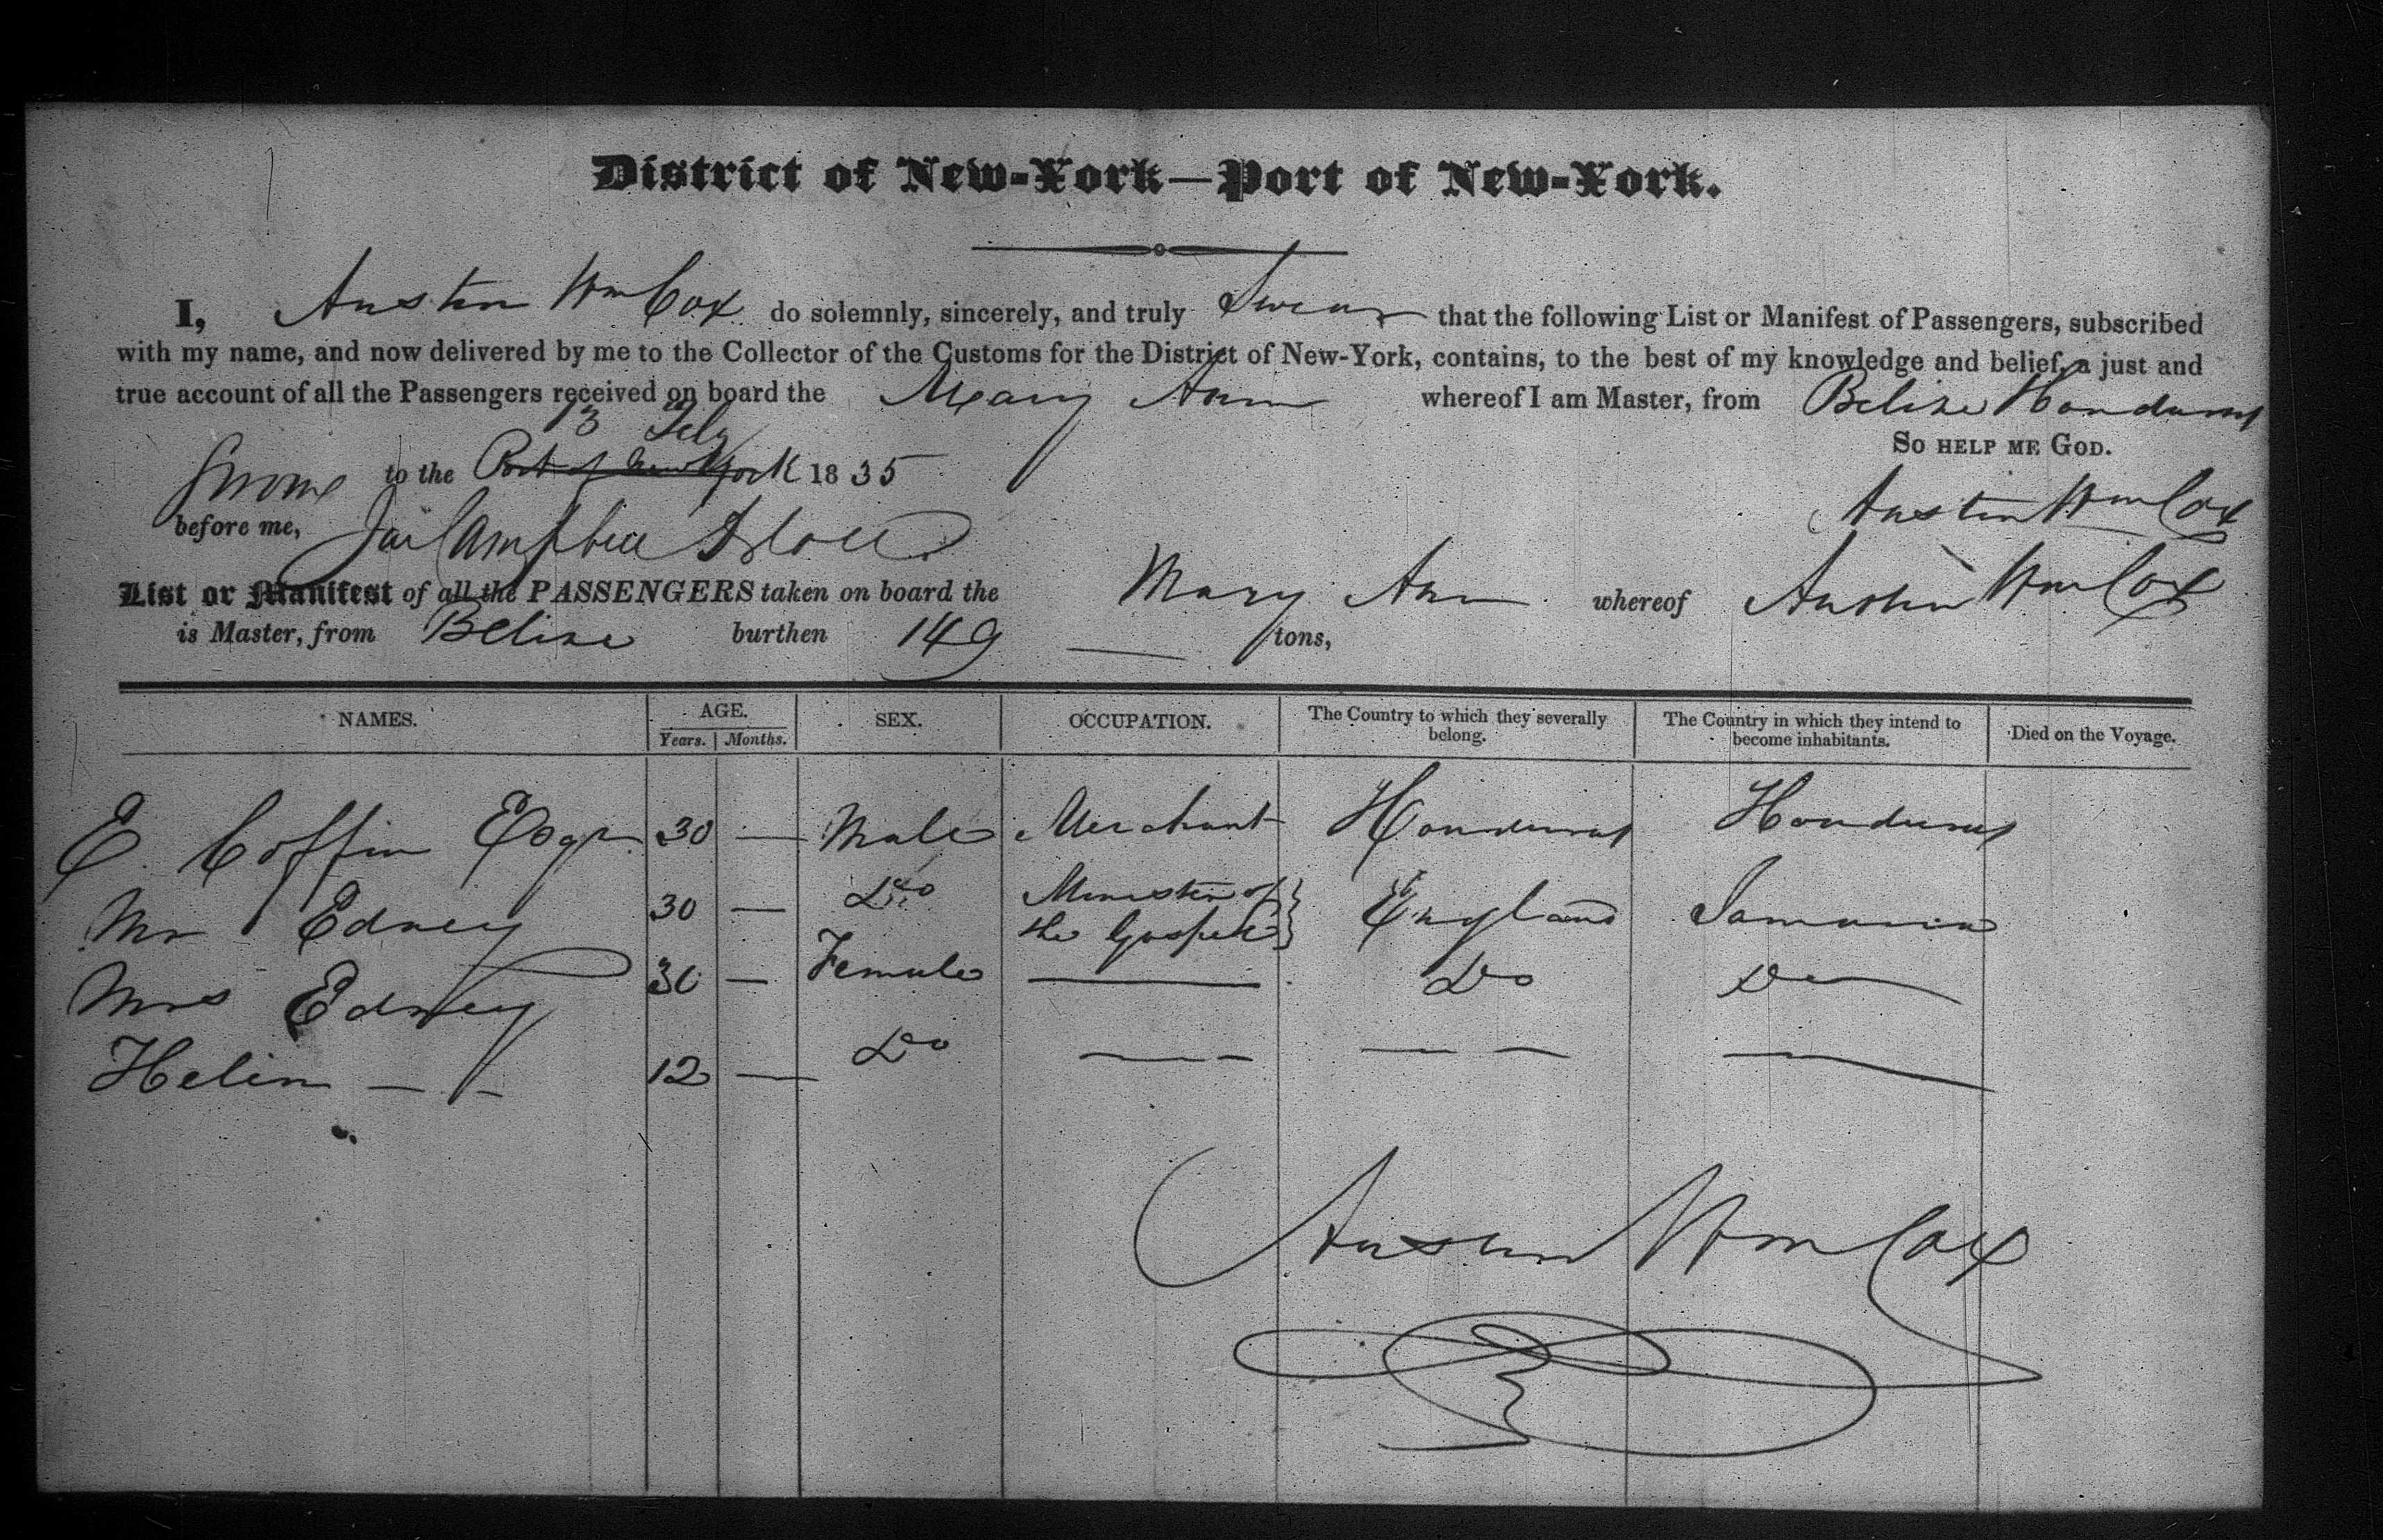 District of New-York—Port of New-York.
I, Austin Wm Cox do solemnly, sincerely, and truly Swear that the following List or Manifest of Passengers, subscribed
with my name, and now delivered by me to the Collector of the Customs for the District of New-York, contains, to the best of my knowledge and belief, a just and
true account of all the Passengers received on board the Mary Ann whereof I am Master, from Belize Honduras
So HELP ME GOD.
13 July
Sworn to the Port of New York 1835
Austin Wm Cox
before me,
List or Manifest of all the PASSENGERS taken on board the Mary Ann whereof Austin Wm Cox
is Master, from Belize burthen 149 tons,
NAMES. AGE. SEX. OCCUPATION. The Country to which they severally belong. The Country in which they intend to become inhabitants. Died on the Voyage.
Years. Months.
E. Coffin Esqr 30 — Male Merchant Honduras Honduras
Mr Edney 30 — Do Minister of the Gospel } England Jamaica
Mrs Edney 30 — Female — Do Do
Helin — - 12 — Do — — — — —
Austin Wm Cox